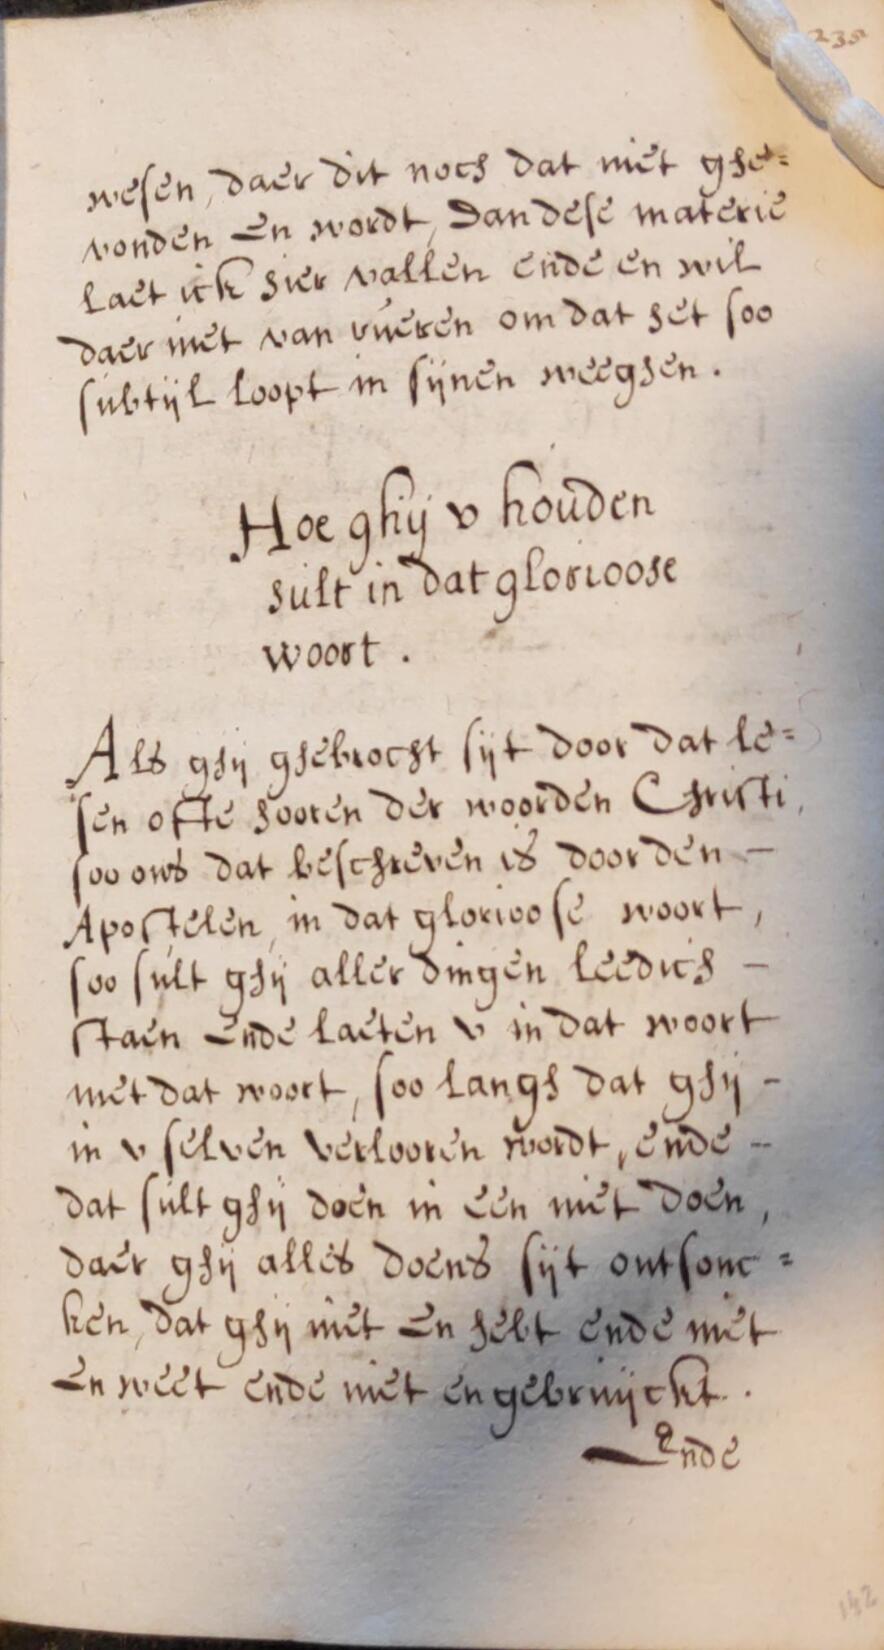 wesen, daer dit noch dat niet ghe=
vonden en wordt, dan dese materie
laet ick hier vallen ende en wil
daer niet van rueren om dat het soo
subtijl loopt in sijnen weeghen.
Hoe ghij v houden
sult in dat glorioose
woort.
Als ghij ghebrocht sijt door dat le=
sen ofte hooren der woorden Christi,
soo ons dat beschreven is door den –
Apostelen, in dat glorioose woort,
soo sult ghij aller dingen leedich –
staen ende laeten v in dat woort
met dat woort, soo langh dat ghij –
in v selven verlooren wordt, ende –
dat sult ghij doen in een niet doen,
daer ghij alles doens sijt ontsonc=
ken, dat ghij niet en hebt ende niet
en weet ende niet en gebruijckt.
Ende
142